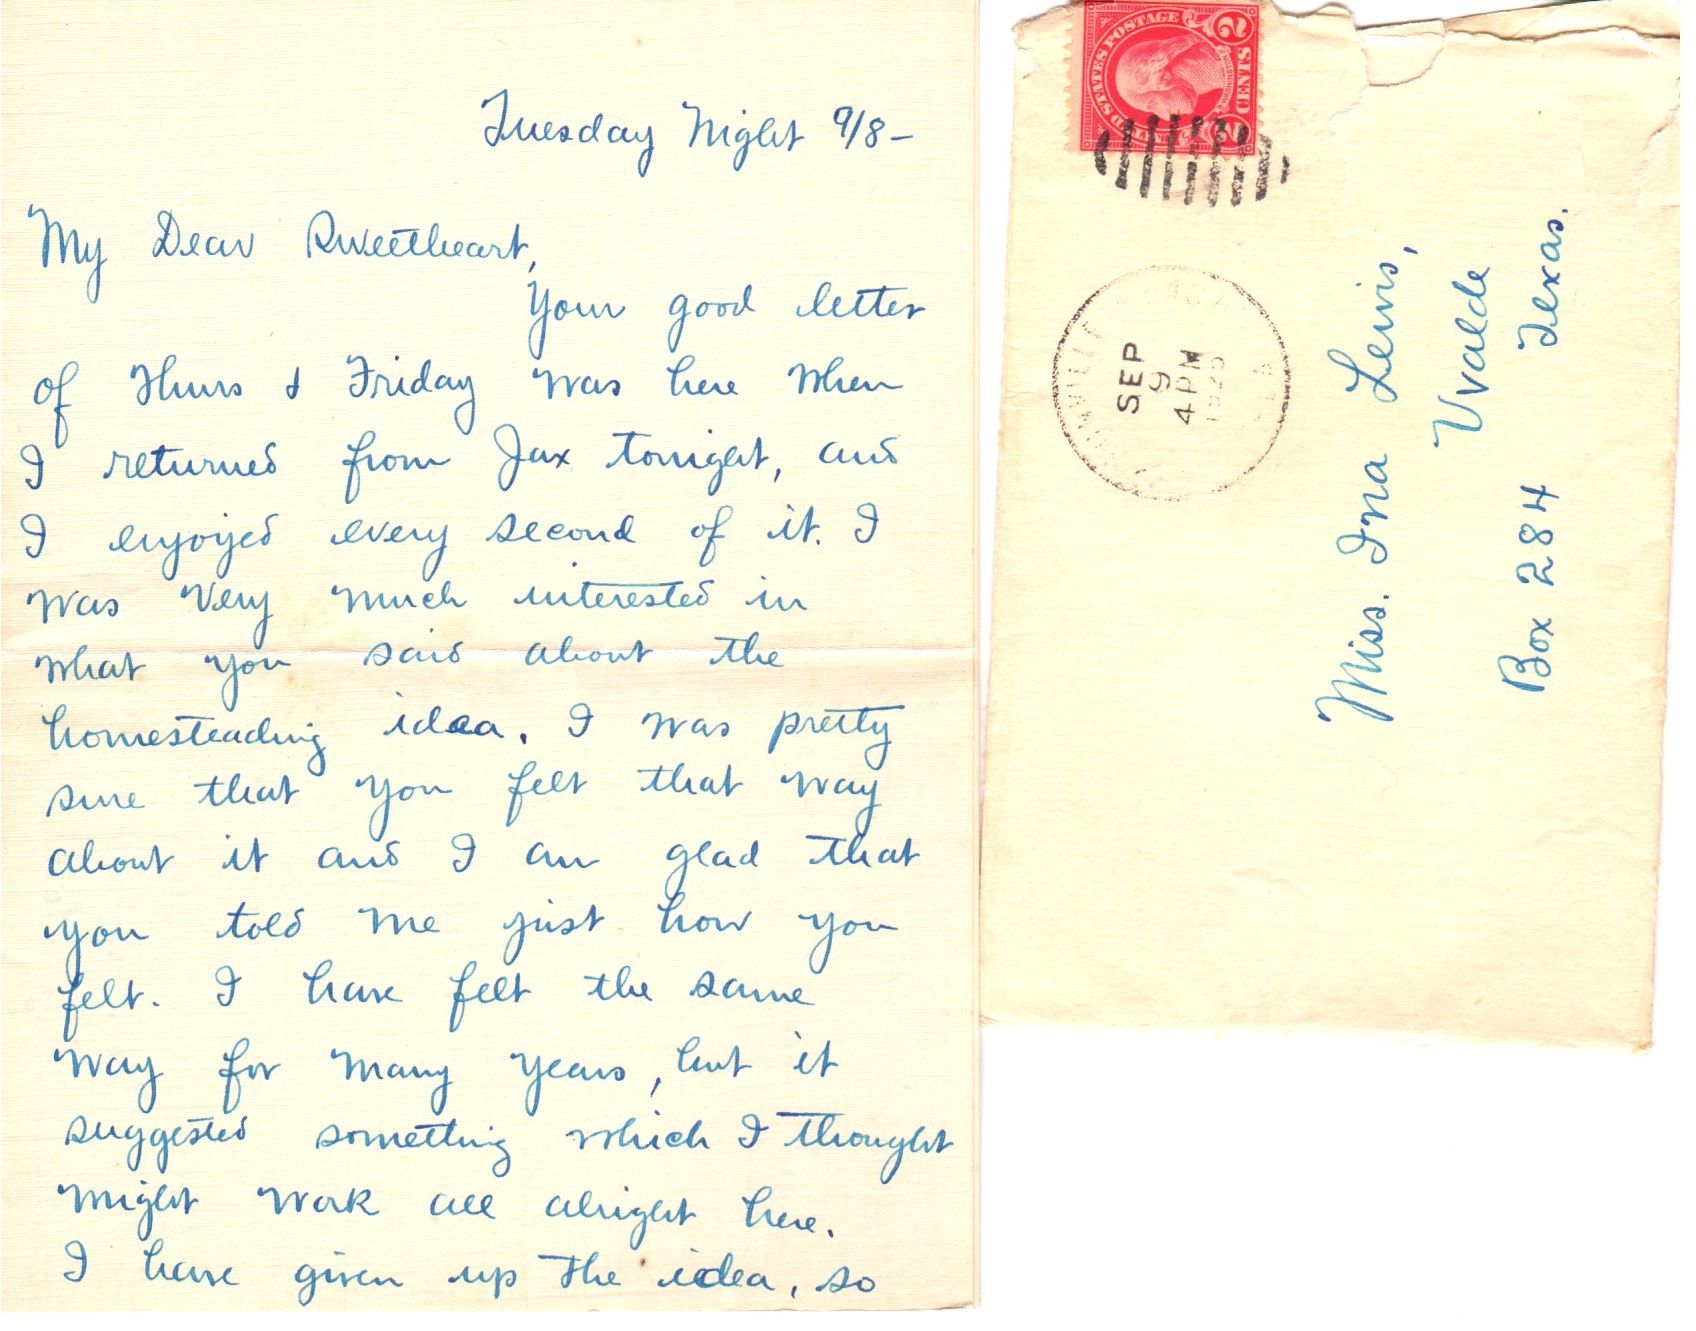 Tuesday Night 9/8-
My Dear Sweetheart,
Your good letter
of Thurs & Friday was here when
I returned from Jax tonight, and
I enjoyed every second of it. I
was very much interested in
what you said about the
homesteading idea. I was pretty
sure that you felt that way
about it and I am glad that
you told me just how you
felt. I have felt the same
way for many years, but it
suggested something which I thought
might work all alright here.
I have given up the idea, so
UNITED STATES POSTAGE
WASHINGTON
2 CENTS 2
SEP
9
4 PM
1925
Miss. Ina Lewis,
Uvalde
Box 284 Texas.